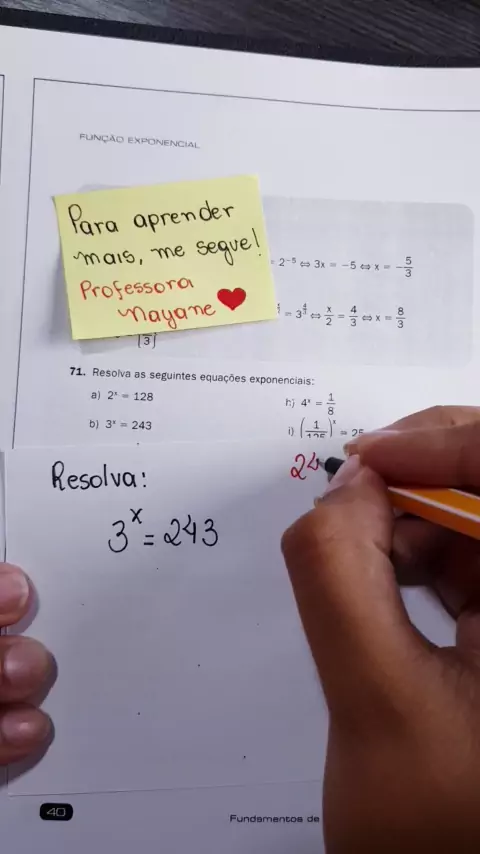 FUNÇÃO EXPONENCIAL
Para aprender
mais, me segue!
Professora
Nayane
= 2⁻⁵ ⇔ 3x = −5 ⇔ x = −5/3
= 3^(4/3) ⇔ x/2 = 4/3 ⇔ x = 8/3
71. Resolva as seguintes equações exponenciais:
a) 2ˣ = 128
h) 4ˣ = 1/8
b) 3ˣ = 243
i) (1/125)ˣ = 25
Resolva:
24
3ˣ = 243
40
Fundamentos de